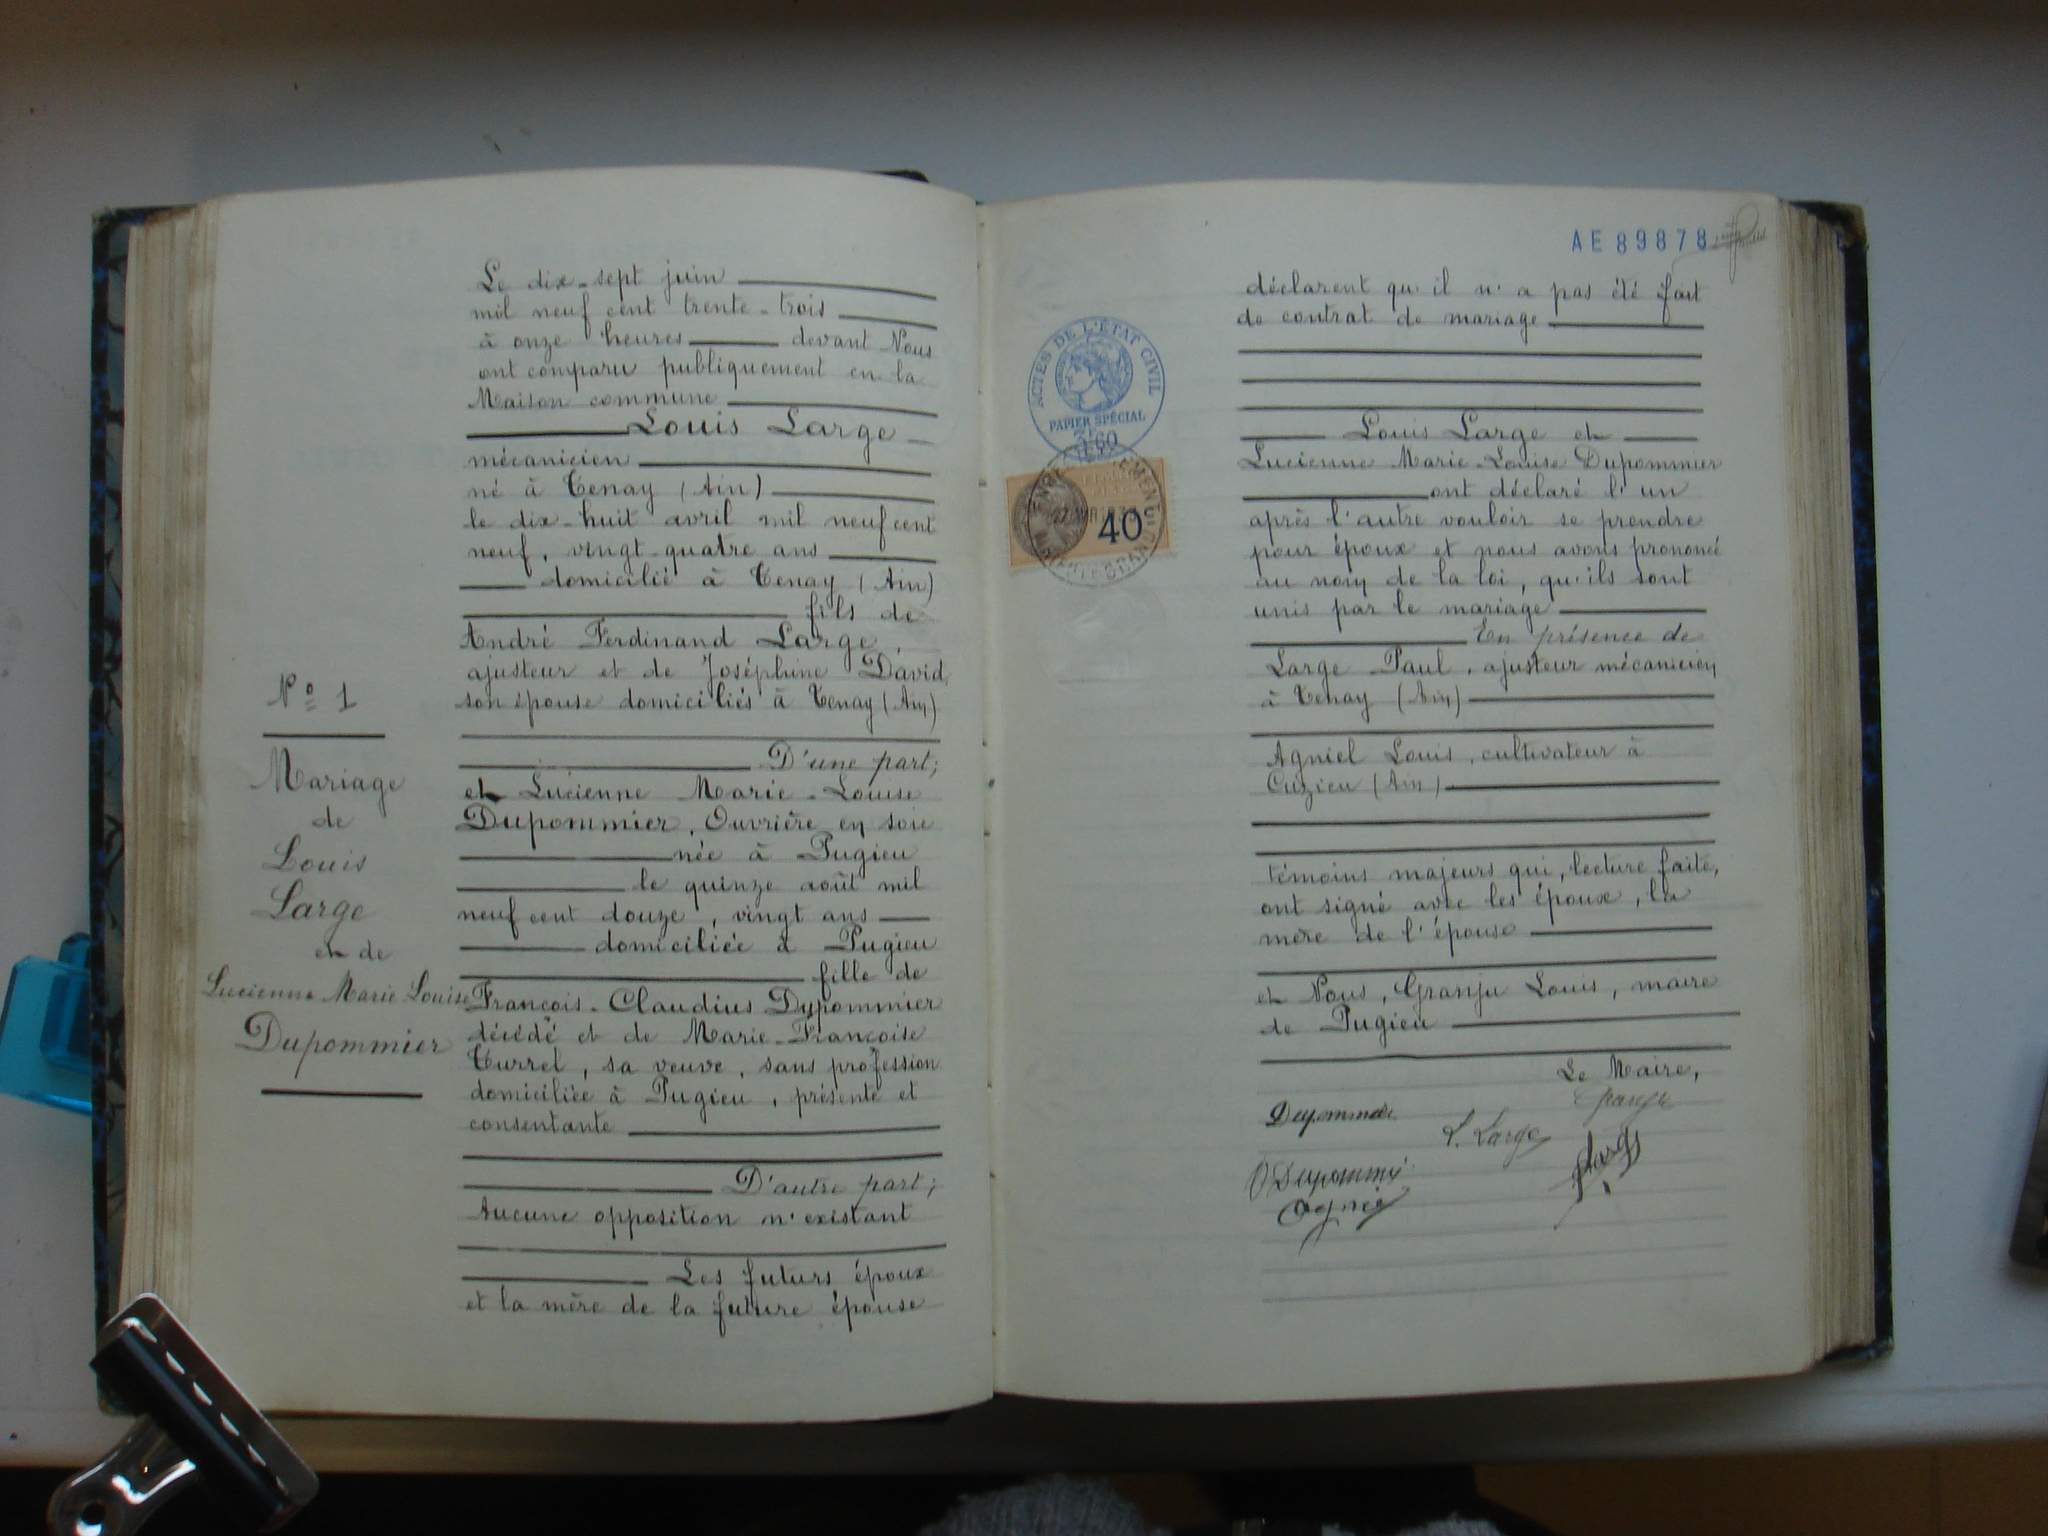 Nº 1
Mariage
de
Louis
Large
et de
Lucienne Marie Louise
Dupommier
Le dix-sept juin
mil neuf cent trente-trois
à onze heures devant Nous
ont comparu publiquement en la
Maison commune
Louis Large
mécanicien
né à Tenay (Ain)
le dix-huit avril mil neuf cent
neuf, vingt-quatre ans
domicilié à Tenay (Ain)
fils de
André Ferdinand Large,
ajusteur et de Joséphine David,
son épouse domiciliés à Tenay (Ain)
D'une part;
et Lucienne Marie-Louise
Dupommier, Ouvrière en soie
née à Pugieu
le quinze août mil
neuf cent douze, vingt ans
domiciliée à Pugieu
fille de
François-Claudius Dupommier
décédé et de Marie-Françoise
Turrel, sa veuve, sans profession
domiciliée à Pugieu, présente et
consentante
D'autre part;
Aucune opposition n'existant
Les futurs époux
et la mère de la future épouse
AE 89878
déclarent qu'il n'a pas été fait
de contrat de mariage
ACTES DE L'ÉTAT CIVIL
PAPIER SPÉCIAL
3F60
40c
Louis Large et
Lucienne Marie-Louise Dupommier
ont déclaré l'un
après l'autre vouloir se prendre
pour époux et nous avons prononcé
au nom de la loi, qu'ils sont
unis par le mariage
En présence de
Large Paul, ajusteur mécanicien
à Tenay (Ain)
Agniel Louis, cultivateur à
Cuzieu (Ain)
témoins majeurs qui, lecture faite,
ont signé avec les époux, la
mère de l'épouse
et Nous, Granju Louis, maire
de Pugieu
Le Maire,
Granju
Dupommier
L. Large
Large
Dupommié
Agniel